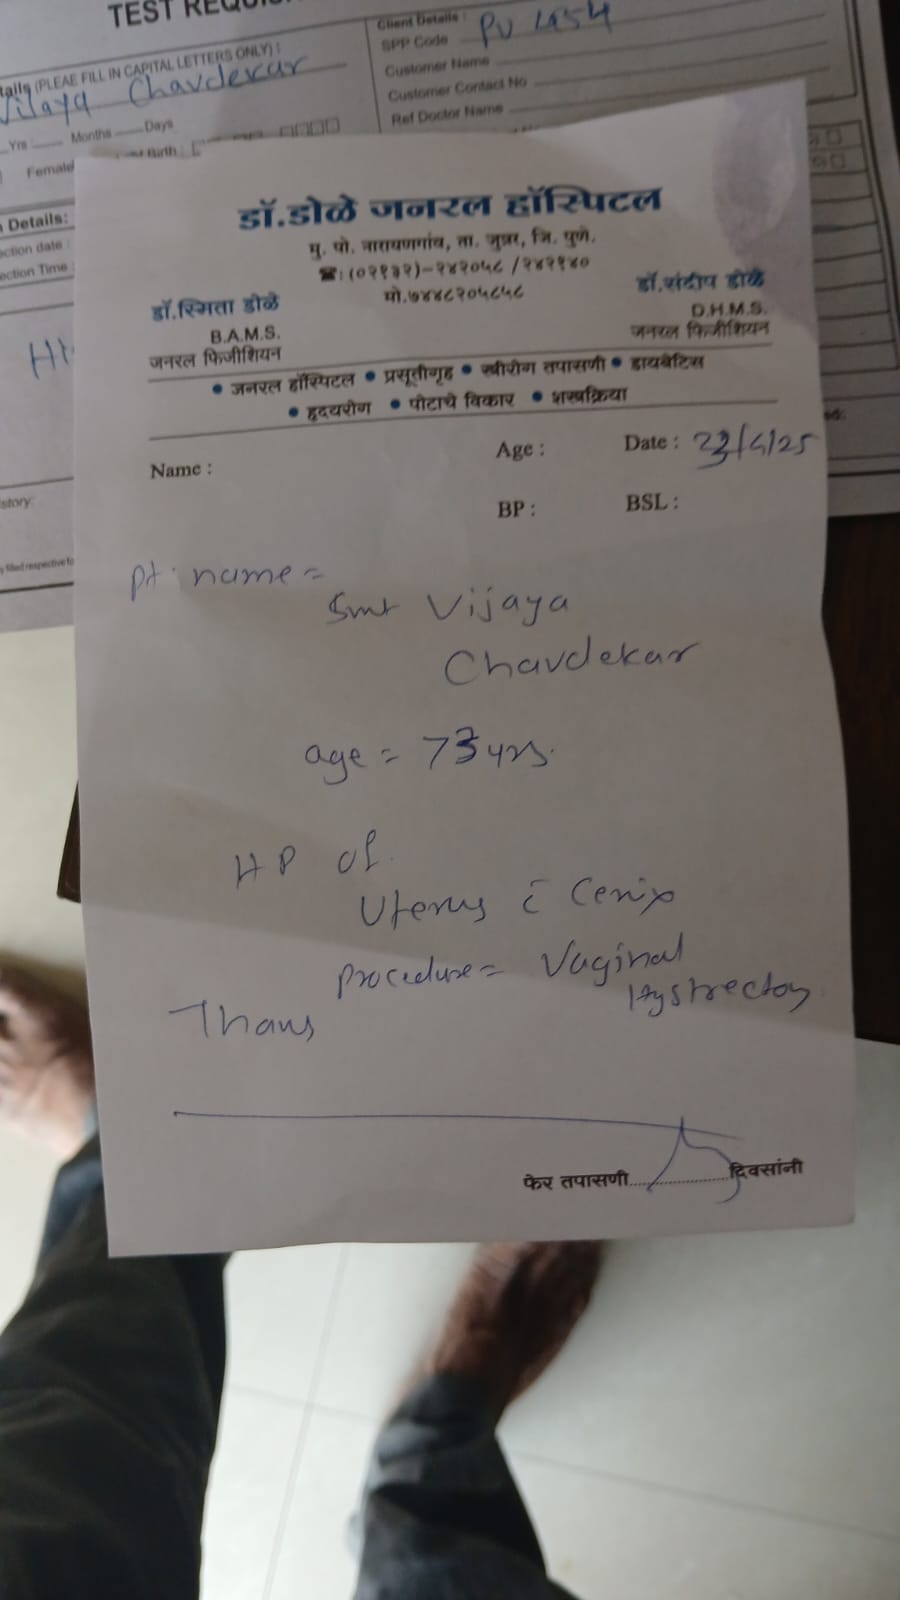 TEST REQUIS
Client Details :
SPP Code PU 1454
Customer Name
Customer Contact No
Ref Doctor Name
tails (PLEAE FILL IN CAPITAL LETTERS ONLY) :
Vijaya Chavdekar
Yrs Months Days
Female
Birth :
Details:
ection date :
ection Time :
story:
डॉ.डोळे जनरल हॉस्पिटल
मु. पो. नारायणगांव, ता. जुन्नर, जि. पुणे.
☎: (०२१३२)-२४२०५८ /२४२१४०
मो.७४४८२०५८५८
डॉ.स्मिता डोळे
B.A.M.S.
जनरल फिजीशियन
डॉ.संदीप डोळे
D.H.M.S.
जनरल फिजीशियन
• जनरल हॉस्पिटल • प्रसूतीगृह • स्त्रीरोग तपासणी • डायबेटिस
• हृदयरोग • पोटाचे विकार • शस्त्रक्रिया
Name : Age : Date : 23/4/25
BP : BSL :
pt. name =
Smt Vijaya
Chavdekar
age = 73 yrs.
HP of.
Uterus c̄ Cervix
procedure = Vaginal
Hystrectoy
Thans
फेर तपासणी..................दिवसांनी